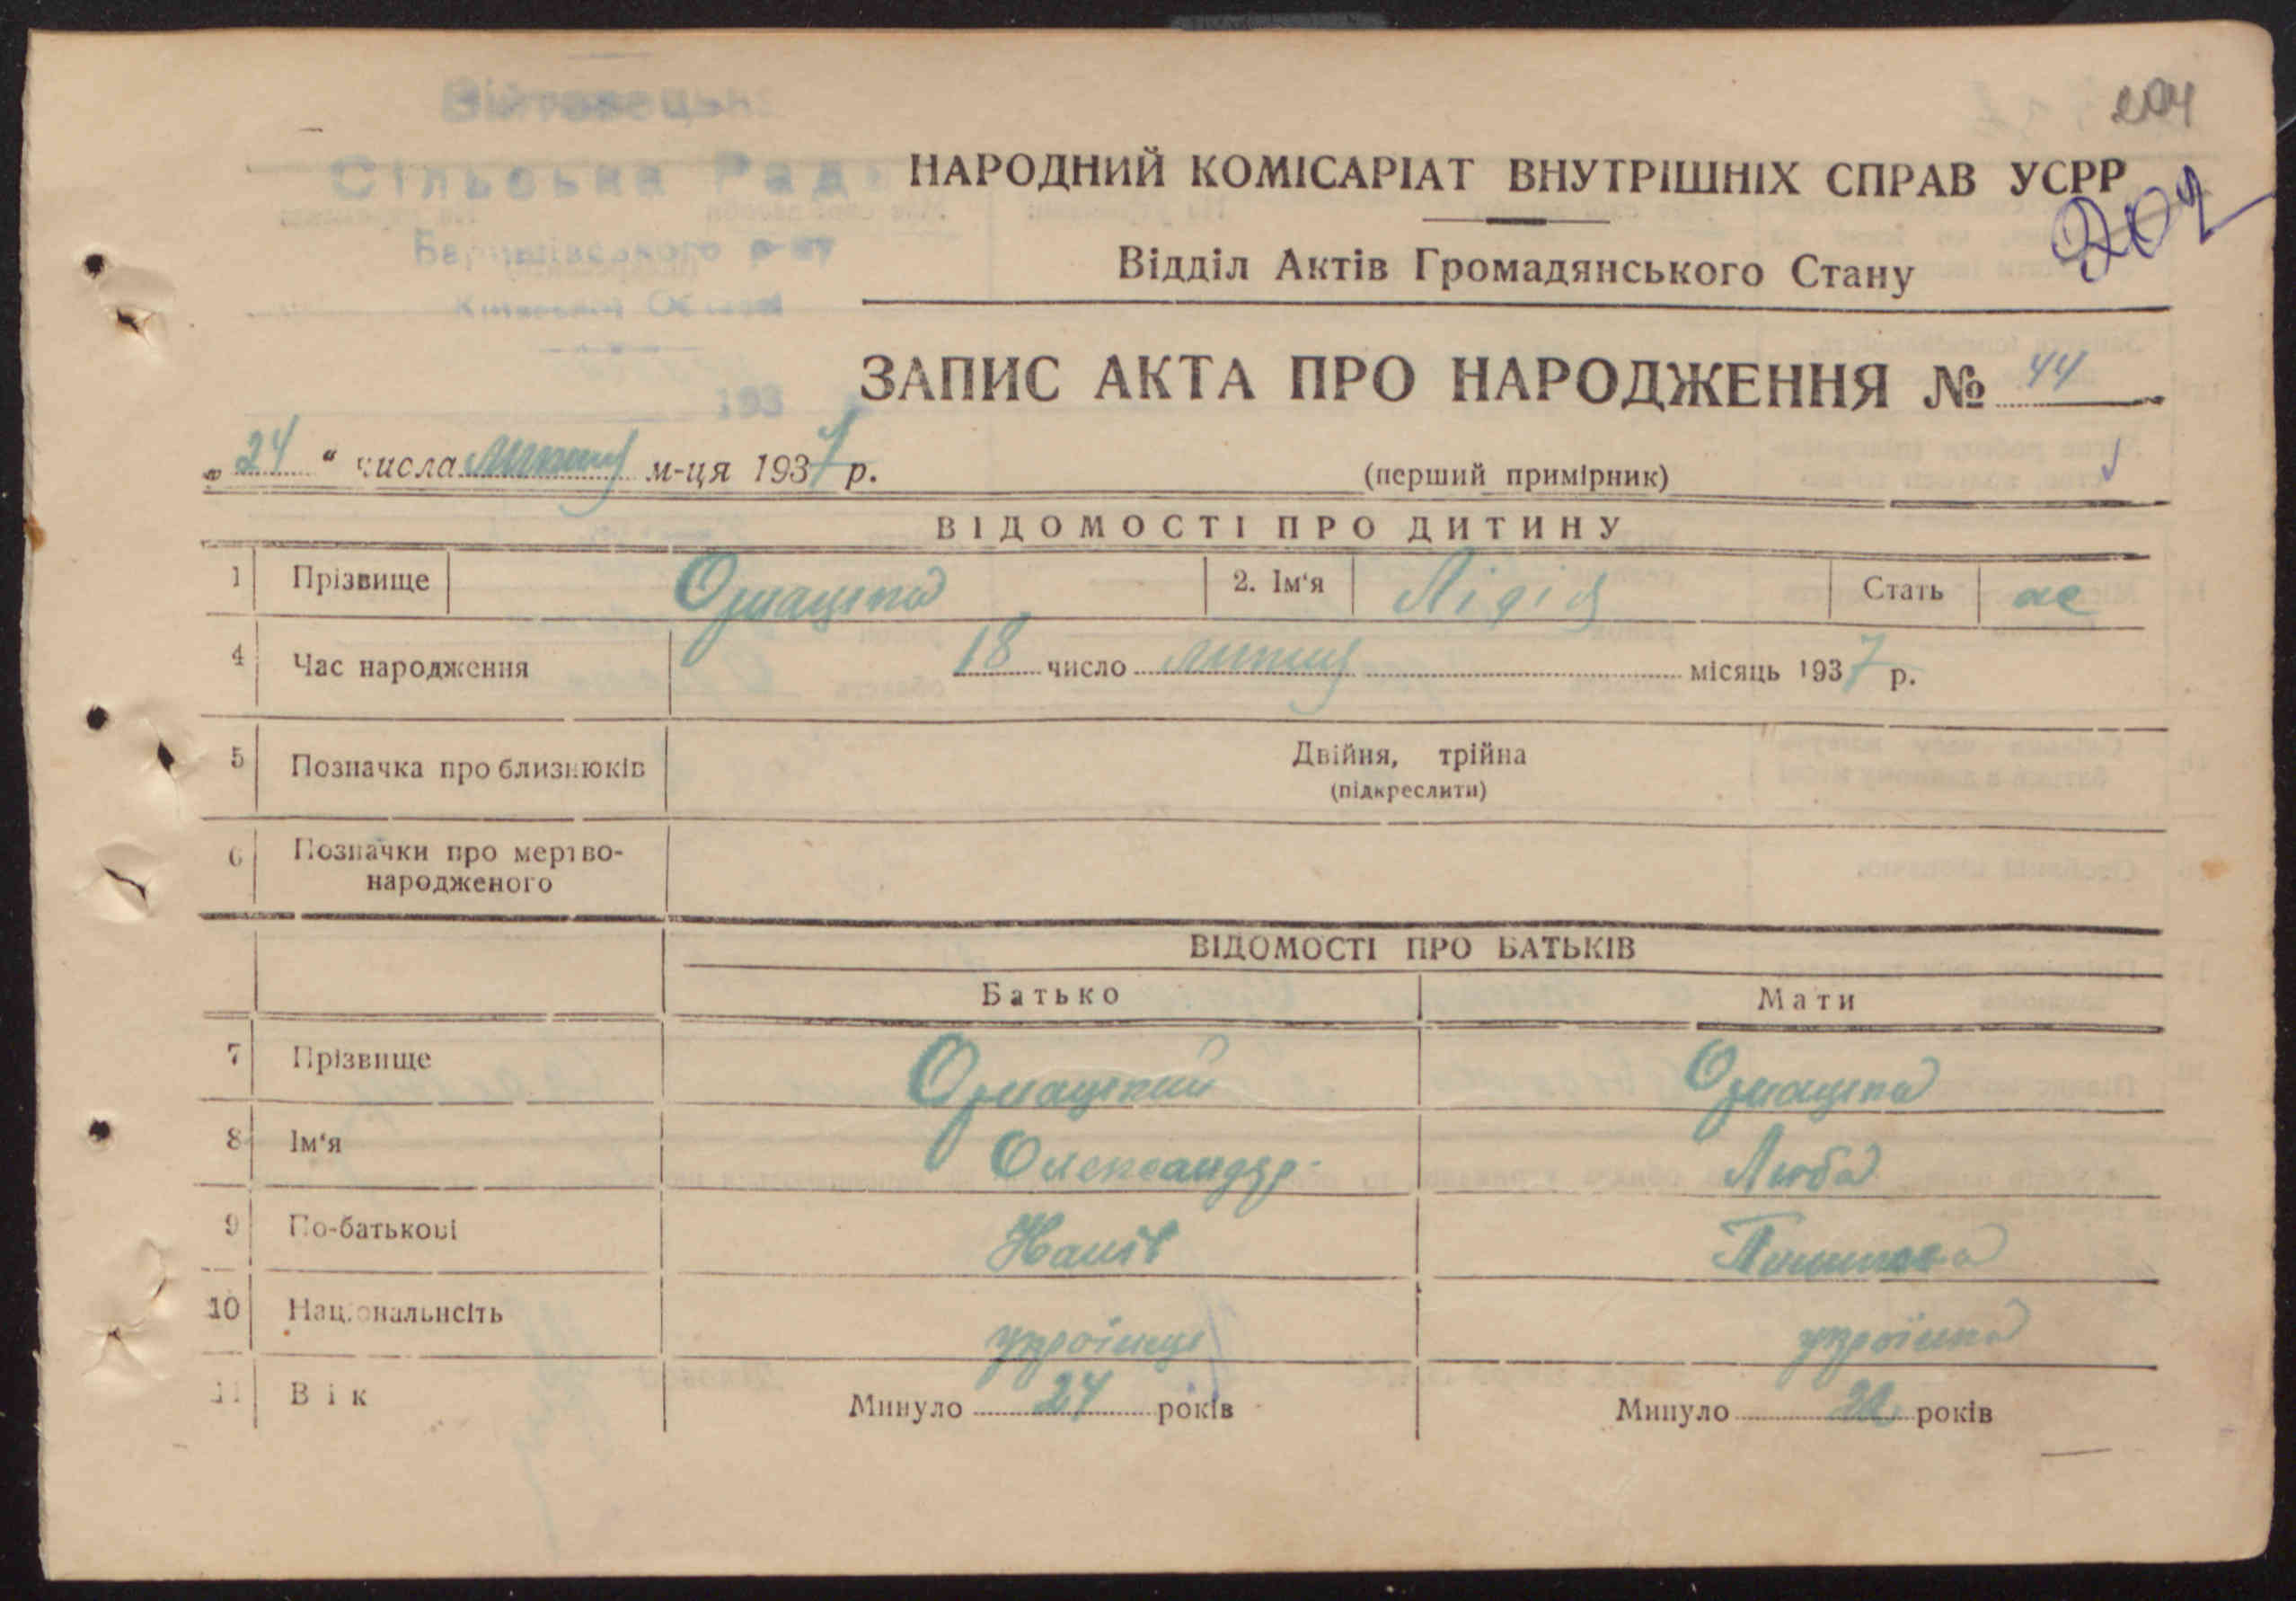 Війтовецька
204
Сільська Рада
НАРОДНИЙ КОМІСАРІАТ ВНУТРІШНІХ СПРАВ УСРР
202
Баришівського р-ну
Відділ Актів Громадянського Стану
Київської Області
ЗАПИС АКТА ПРО НАРОДЖЕННЯ № 44
193
„24“ числа липня м-ця 1937 р.
(перший примірник)
ВІДОМОСТІ ПРО ДИТИНУ
1 Прізвище 2. Ім'я Лідія Стать
4 Час народження 18 число липня місяць 1937 р.
5 Позначка про близнюків Двійня, трійна
(підкреслити)
6 Позначки про мертво-
народженого
ВІДОМОСТІ ПРО БАТЬКІВ
Батько Мати
7 Прізвище
8 Ім'я Олександр Люба
9 По-батькові
10 Національнсіть українець українка
11 Вік Минуло 24 років Минуло 22 років